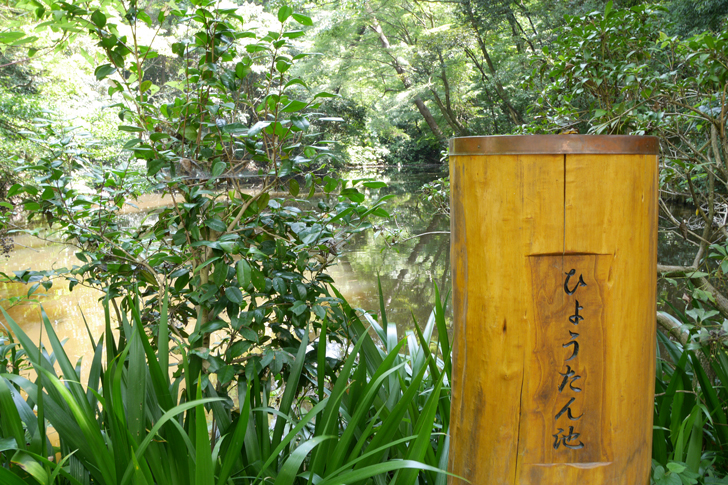 ひょうたん池